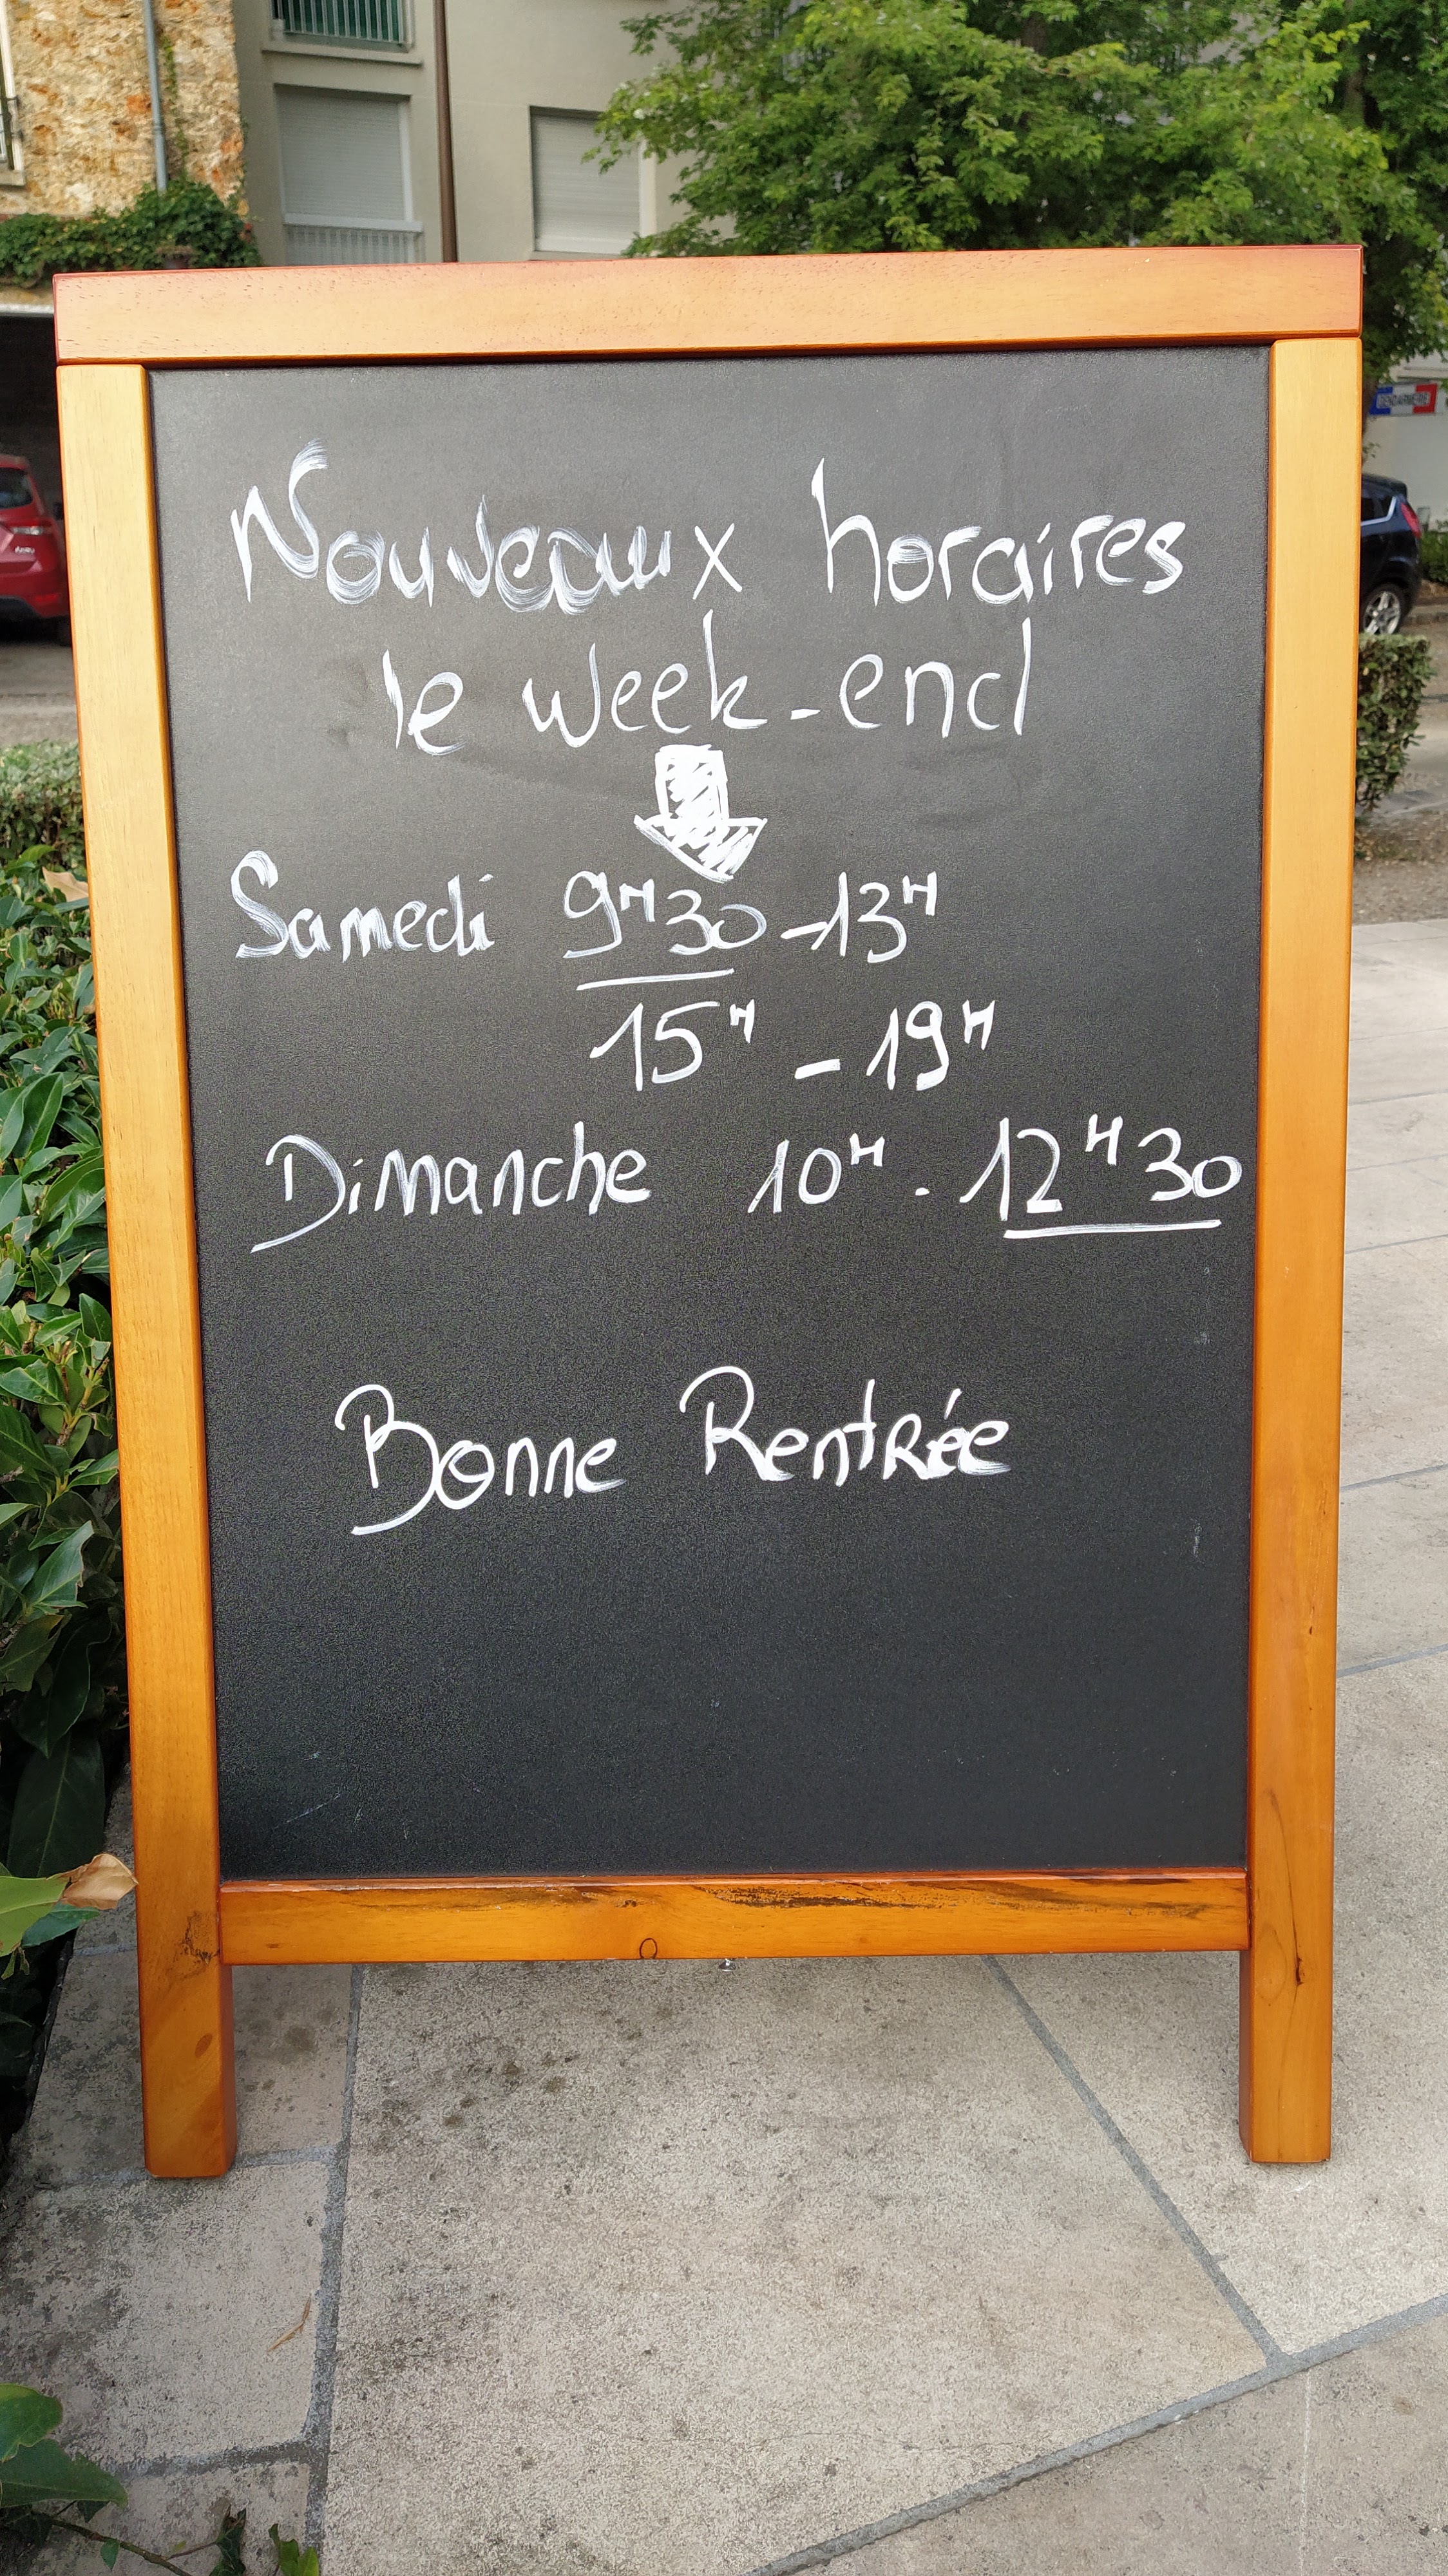 Nouveaux horaires
le week-end
Samedi 9H30 - 13H
15H - 19H
Dimanche 10H - 12H30
Bonne Rentrée
GENDARMERIE